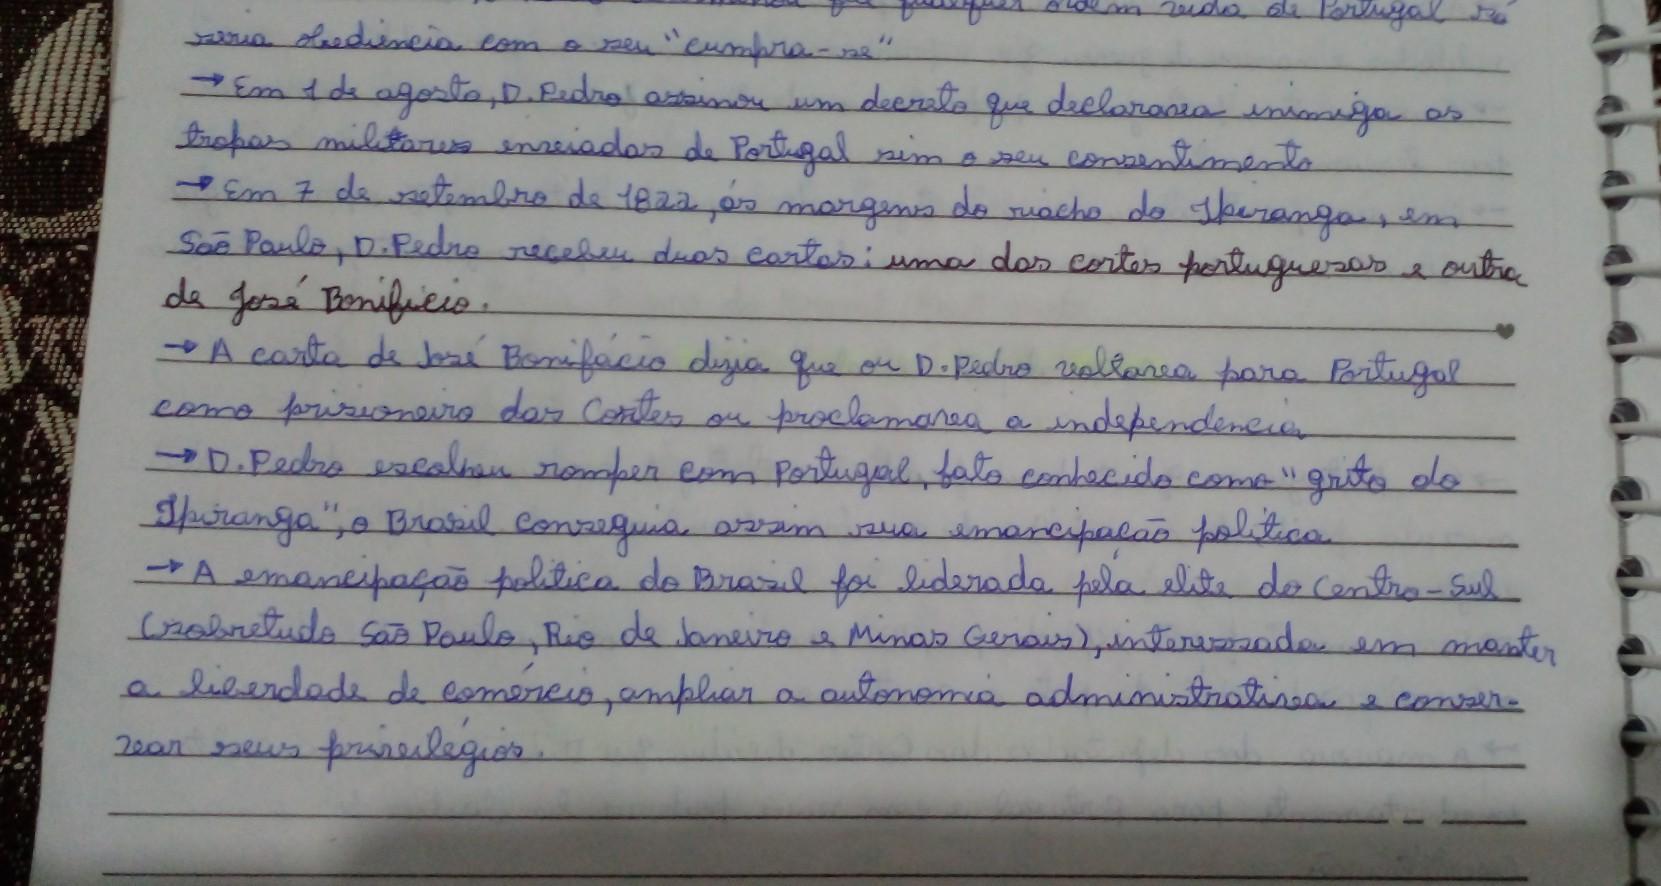 que qualquer ordem vinda de Portugal só
seria obediência com o seu "cumpra-se"
→ Em 1 de agosto, D. Pedro assinou um decreto que declarava inimiga as
tropas militares enviadas de Portugal sim o seu consentimento
→ Em 7 de setembro de 1822, ás margens do riacho do Ipiranga, em
São Paulo, D. Pedro recebeu duas cartas: uma das cortes portuguesas e outra
de José Bonifácio.
→ A carta de José Bonifácio dizia que ou D. Pedro voltava para Portugal
como prisioneiro das Cortes ou proclamava a independência
→ D. Pedro escolheu romper com Portugal, fato conhecido como "grito do
Ipiranga", o Brasil conseguia assim sua emancipação política
→ A emancipação política do Brasil foi liderada pela elite do Centro-Sul
(sobretudo São Paulo, Rio de Janeiro e Minas Gerais), interessada em manter
a liberdade de comércio, ampliar a autonomia administrativa e conser-
var seus privilégios.